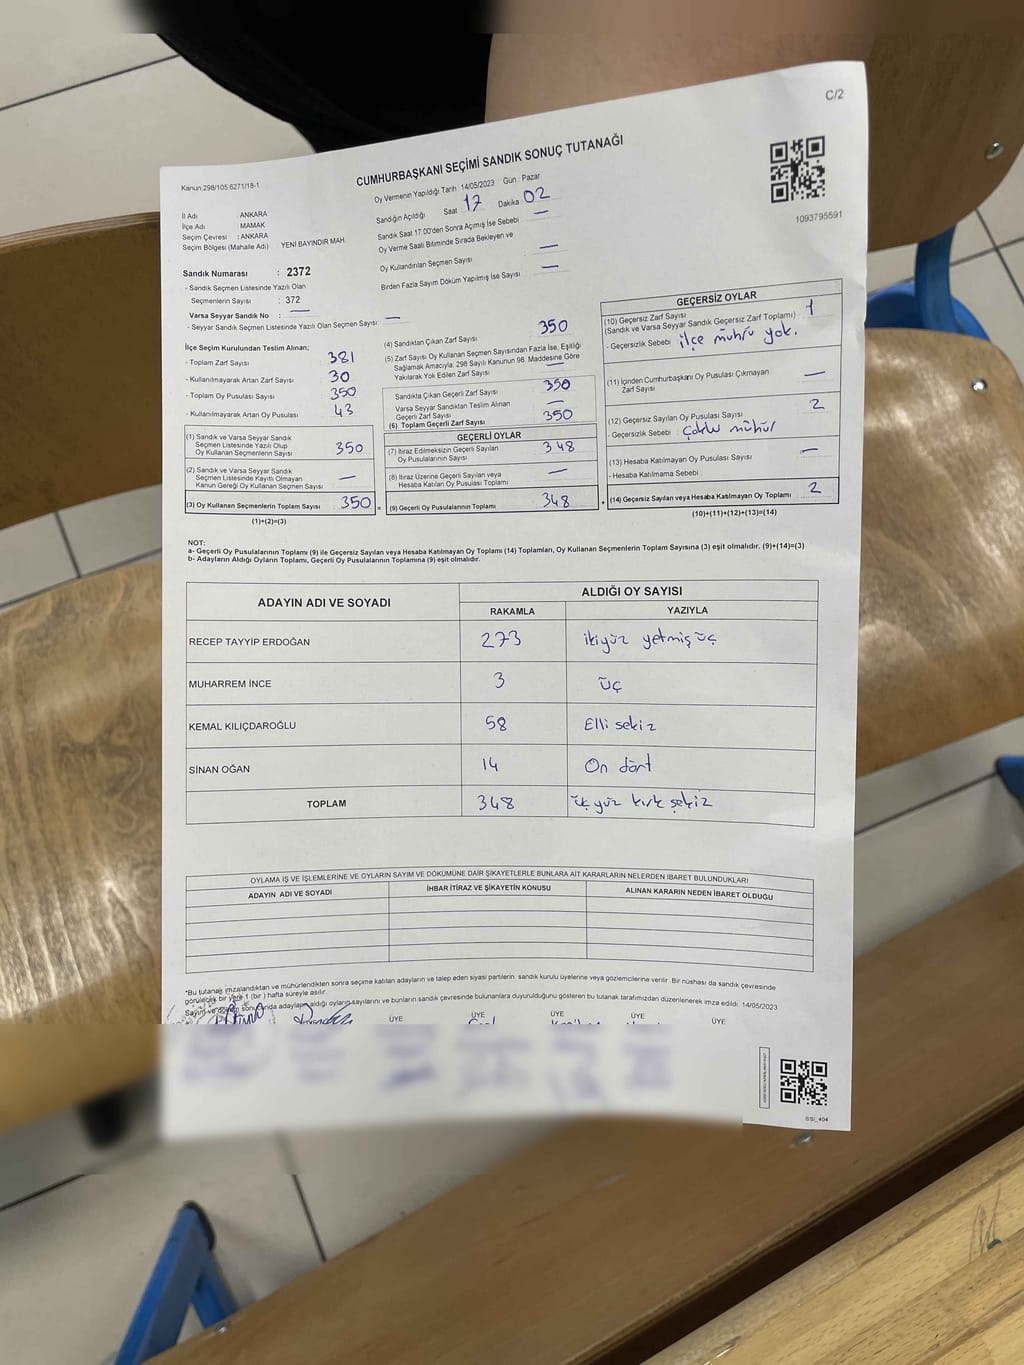 C/2
Kanun;298/105.6271/18-1
CUMHURBAŞKANI SEÇİMİ SANDIK SONUÇ TUTANAĞI
Oy Vermenin Yapıldığı Tarih : 14/05/2023 Gün : Pazar
Sandığın Açıldığı Saat 17 Dakika 02
Sandık Saat 17:00'den Sonra Açımış İse Sebebi —
Oy Verme Saati Bitiminde Sırada Bekleyen ve
Oy Kullandırılan Seçmen Sayısı —
Birden Fazla Sayım Döküm Yapılmış İse Sayısı —
1093795591
İl Adı ANKARA
İlçe Adı MAMAK
Seçim Çevresi : ANKARA
Seçim Bölgesi (Mahalle Adı) YENİ BAYINDIR MAH.
Sandık Numarası : 2372
- Sandık Seçmen Listesinde Yazılı Olan
Seçmenlerin Sayısı : 372
Varsa Seyyar Sandık No : —
- Seyyar Sandık Seçmen Listesinde Yazılı Olan Seçmen Sayısı: —
İlçe Seçim Kurulundan Teslim Alınan;
- Toplam Zarf Sayısı 381
- Kullanılmayarak Artan Zarf Sayısı 30
- Toplam Oy Pusulası Sayısı 350
- Kullanılmayarak Artan Oy Pusulası 43
(1) Sandık ve Varsa Seyyar Sandık
Seçmen Listesinde Yazılı Olup
Oy Kullanan Seçmenlerin Sayısı 350
(2) Sandık ve Varsa Seyyar Sandık
Seçmen Listesinde Kayıtlı Olmayan
Kanun Gereği Oy Kullanan Seçmen Sayısı —
(3) Oy Kullanan Seçmenlerin Toplam Sayısı 350 =
(1)+(2)=(3)
(4) Sandıktan Çıkan Zarf Sayısı 350
(5) Zarf Sayısı Oy Kullanan Seçmen Sayısından Fazla İse, Eşitliği
Sağlamak Amacıyla, 298 Sayılı Kanunun 98. Maddesine Göre
Yakılarak Yok Edilen Zarf Sayısı —
Sandıkta Çıkan Geçerli Zarf Sayısı 350
Varsa Seyyar Sandıktan Teslim Alınan
Geçerli Zarf Sayısı —
(6) Toplam Geçerli Zarf Sayısı 350
GEÇERLİ OYLAR
(7) İtiraz Edilmeksizin Geçerli Sayılan
Oy Pusulalarının Sayısı 348
(8) İtiraz Üzerine Geçerli Sayılan veya
Hesaba Katılan Oy Pusulası Toplamı —
(9) Geçerli Oy Pusulalarının Toplamı 348 +
GEÇERSİZ OYLAR
(10) Geçersiz Zarf Sayısı 1
(Sandık ve Varsa Seyyar Sandık Geçersiz Zarf Toplamı)
- Geçersizlik Sebebi : ilçe mührü yok.
(11) İçinden Cumhurbaşkanı Oy Pusulası Çıkmayan
Zarf Sayısı —
(12) Geçersiz Sayılan Oy Pusulası Sayısı 2
- Geçersizlik Sebebi : Çoklu mühür
(13) Hesaba Katılmayan Oy Pusulası Sayısı —
- Hesaba Katılmama Sebebi :
(14) Geçersiz Sayılan veya Hesaba Katılmayan Oy Toplamı 2
(10)+(11)+(12)+(13)=(14)
NOT:
a- Geçerli Oy Pusulalarının Toplamı (9) ile Geçersiz Sayılan veya Hesaba Katılmayan Oy Toplamı (14) Toplamları, Oy Kullanan Seçmenlerin Toplam Sayısına (3) eşit olmalıdır. (9)+(14)=(3)
b- Adayların Aldığı Oyların Toplamı, Geçerli Oy Pusulalarının Toplamına (9) eşit olmalıdır.
ADAYIN ADI VE SOYADI
ALDIĞI OY SAYISI
RAKAMLA YAZIYLA
RECEP TAYYİP ERDOĞAN 273 ikiyüz yetmiş üç
MUHARREM İNCE 3 üç
KEMAL KILIÇDAROĞLU 58 Elli sekiz
SİNAN OĞAN 14 On dört
TOPLAM 348 üç yüz kırk sekiz
OYLAMA İŞ VE İŞLEMLERİNE VE OYLARIN SAYIM VE DÖKÜMÜNE DAİR ŞİKAYETLERLE BUNLARA AİT KARARLARIN NELERDEN İBARET BULUNDUKLARI
ADAYIN ADI VE SOYADI İHBAR İTİRAZ VE ŞİKAYETİN KONUSU ALINAN KARARIN NEDEN İBARET OLDUĞU
*Bu tutanak imzalandıktan ve mühürlendikten sonra seçime katılan adayların ve talep eden siyasi partilerin sandık kurulu üyelerine veya gözlemcilerine verilir. Bir nüshası da sandık çevresinde
görülecek bir yere 1 (bir) hafta süreyle asılır.
Sayım ve döküm sonucunda adayların aldığı oyların sayılarını ve bunların sandık çevresinde bulunanlara duyurulduğunu gösteren bu tutanak tarafımızdan düzenlenerek imza edildi. 14/05/2023
ÜYE ÜYE ÜYE ÜYE ÜYE
SSI_404